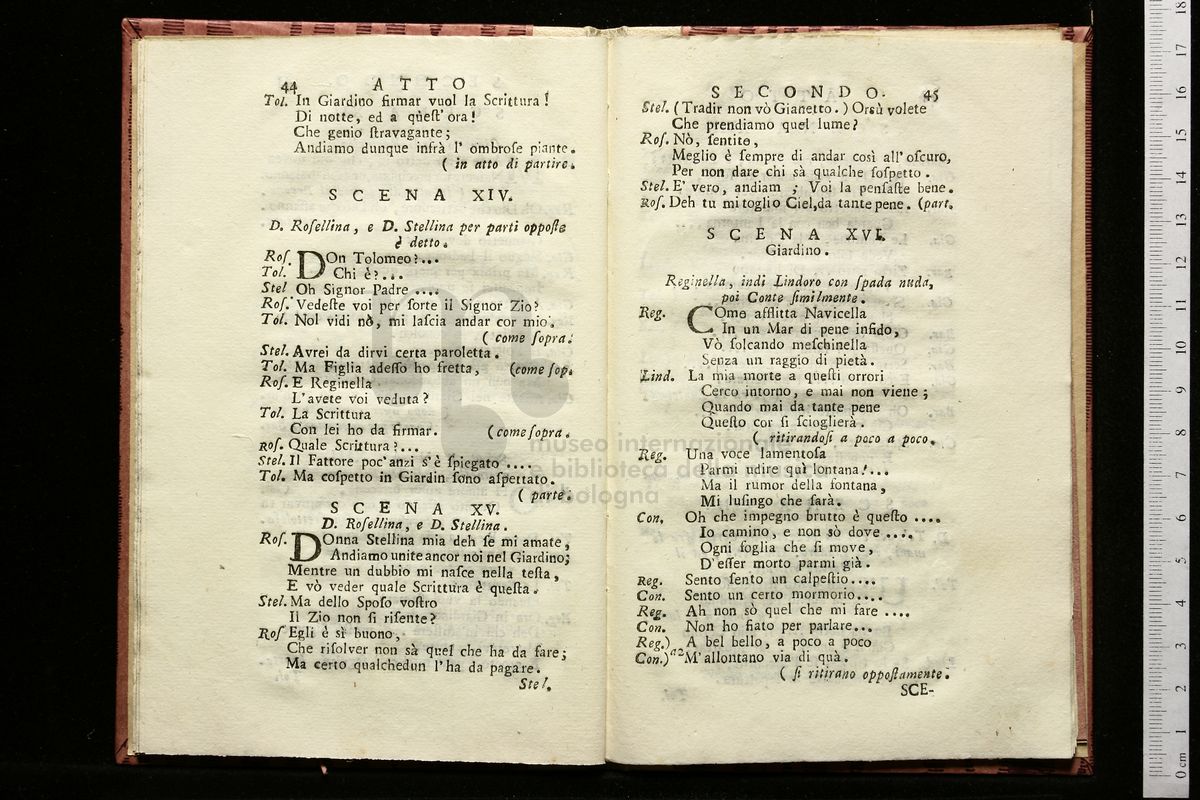 44 ATTO
Tol. In Giardino firmar vuol la Scrittura!
Di notte, ed a queſt' ora!
Che genio ſtravagante;
Andiamo dunque infrà l' ombroſe piante.
( in atto di partire.
SCENA XIV.
D. Roſellina, e D. Stellina per parti oppoſte
è detto.
Roſ. DOn Tolomeo?...
Tol. Chi è?...
Stel Oh Signor Padre ....
Roſ. Vedeſte voi per ſorte il Signor Zio?
Tol. Nol vidi nò, mi laſcia andar cor mio.
( come ſopra.
Stel. Avrei da dirvi certa paroletta.
Tol. Ma Figlia adeſſo ho fretta, (come ſop.
Roſ. E Reginella
L'avete voi veduta?
Tol. La Scrittura
Con lei ho da firmar. (come ſopra.
Roſ. Quale Scrittura?...
Stel. Il Fattore poc'anzi s'è ſpiegato ....
Tol. Ma coſpetto in Giardin ſono aſpettato.
( parte.
SCENA XV.
D. Roſellina, e D. Stellina.
Roſ. DOnna Stellina mia deh ſe mi amate,
Andiamo unite ancor noi nel Giardino;
Mentre un dubbio mi naſce nella teſta,
E vò veder quale Scrittura è queſta.
Stel. Ma dello Spoſo voſtro
Il Zio non ſi riſente?
Roſ Egli è sì buono,
Che riſolver non sà quel che ha da fare;
Ma certo qualchedun l'ha da pagare.
Stel.
SECONDO. 45
Stel. (Tradir non vò Gianetto.) Orsù volete
Che prendiamo quel lume?
Roſ. Nò, ſentite,
Meglio è ſempre di andar così all'oſcuro,
Per non dare chi sà qualche ſoſpetto.
Stel. E' vero, andiam ; Voi la penſaſte bene.
Roſ. Deh tu mi toglio Ciel,da tante pene. (part.
SCENA XVI.
Giardino.
Reginella, indi Lindoro con ſpada nuda,
poi Conte ſimilmente.
Reg. COme afflitta Navicella
In un Mar di pene infido,
Vò ſolcando meſchinella
Senza un raggio di pietà.
Lind. La mia morte a queſti orrori
Cerco intorno, e mai non viene;
Quando mai da tante pene
Queſto cor ſi ſcioglierà.
( ritirandoſi a poco a poco.
Reg. Una voce lamentoſa
Parmi udire quì lontana!...
Ma il rumor della fontana,
Mi luſingo che ſarà.
Con. Oh che impegno brutto è queſto ....
Io camino, e non sò dove ....
Ogni foglia che ſi move,
D'eſſer morto parmi già.
Reg. Sento ſento un calpeſtio....
Con. Sento un certo mormorio....
Reg. Ah non sò quel che mi fare ....
Con. Non ho fiato per parlare...
Reg.) A bel bello, a poco a poco
Con.)a2 M'allontano via di quà.
( ſi ritirano oppoſtamente.
SCE-
museo internazionale
e biblioteca de
bologna
0 cm 1 2 3 4 5 6 7 8 9 10 11 12 13 14 15 16 17 18